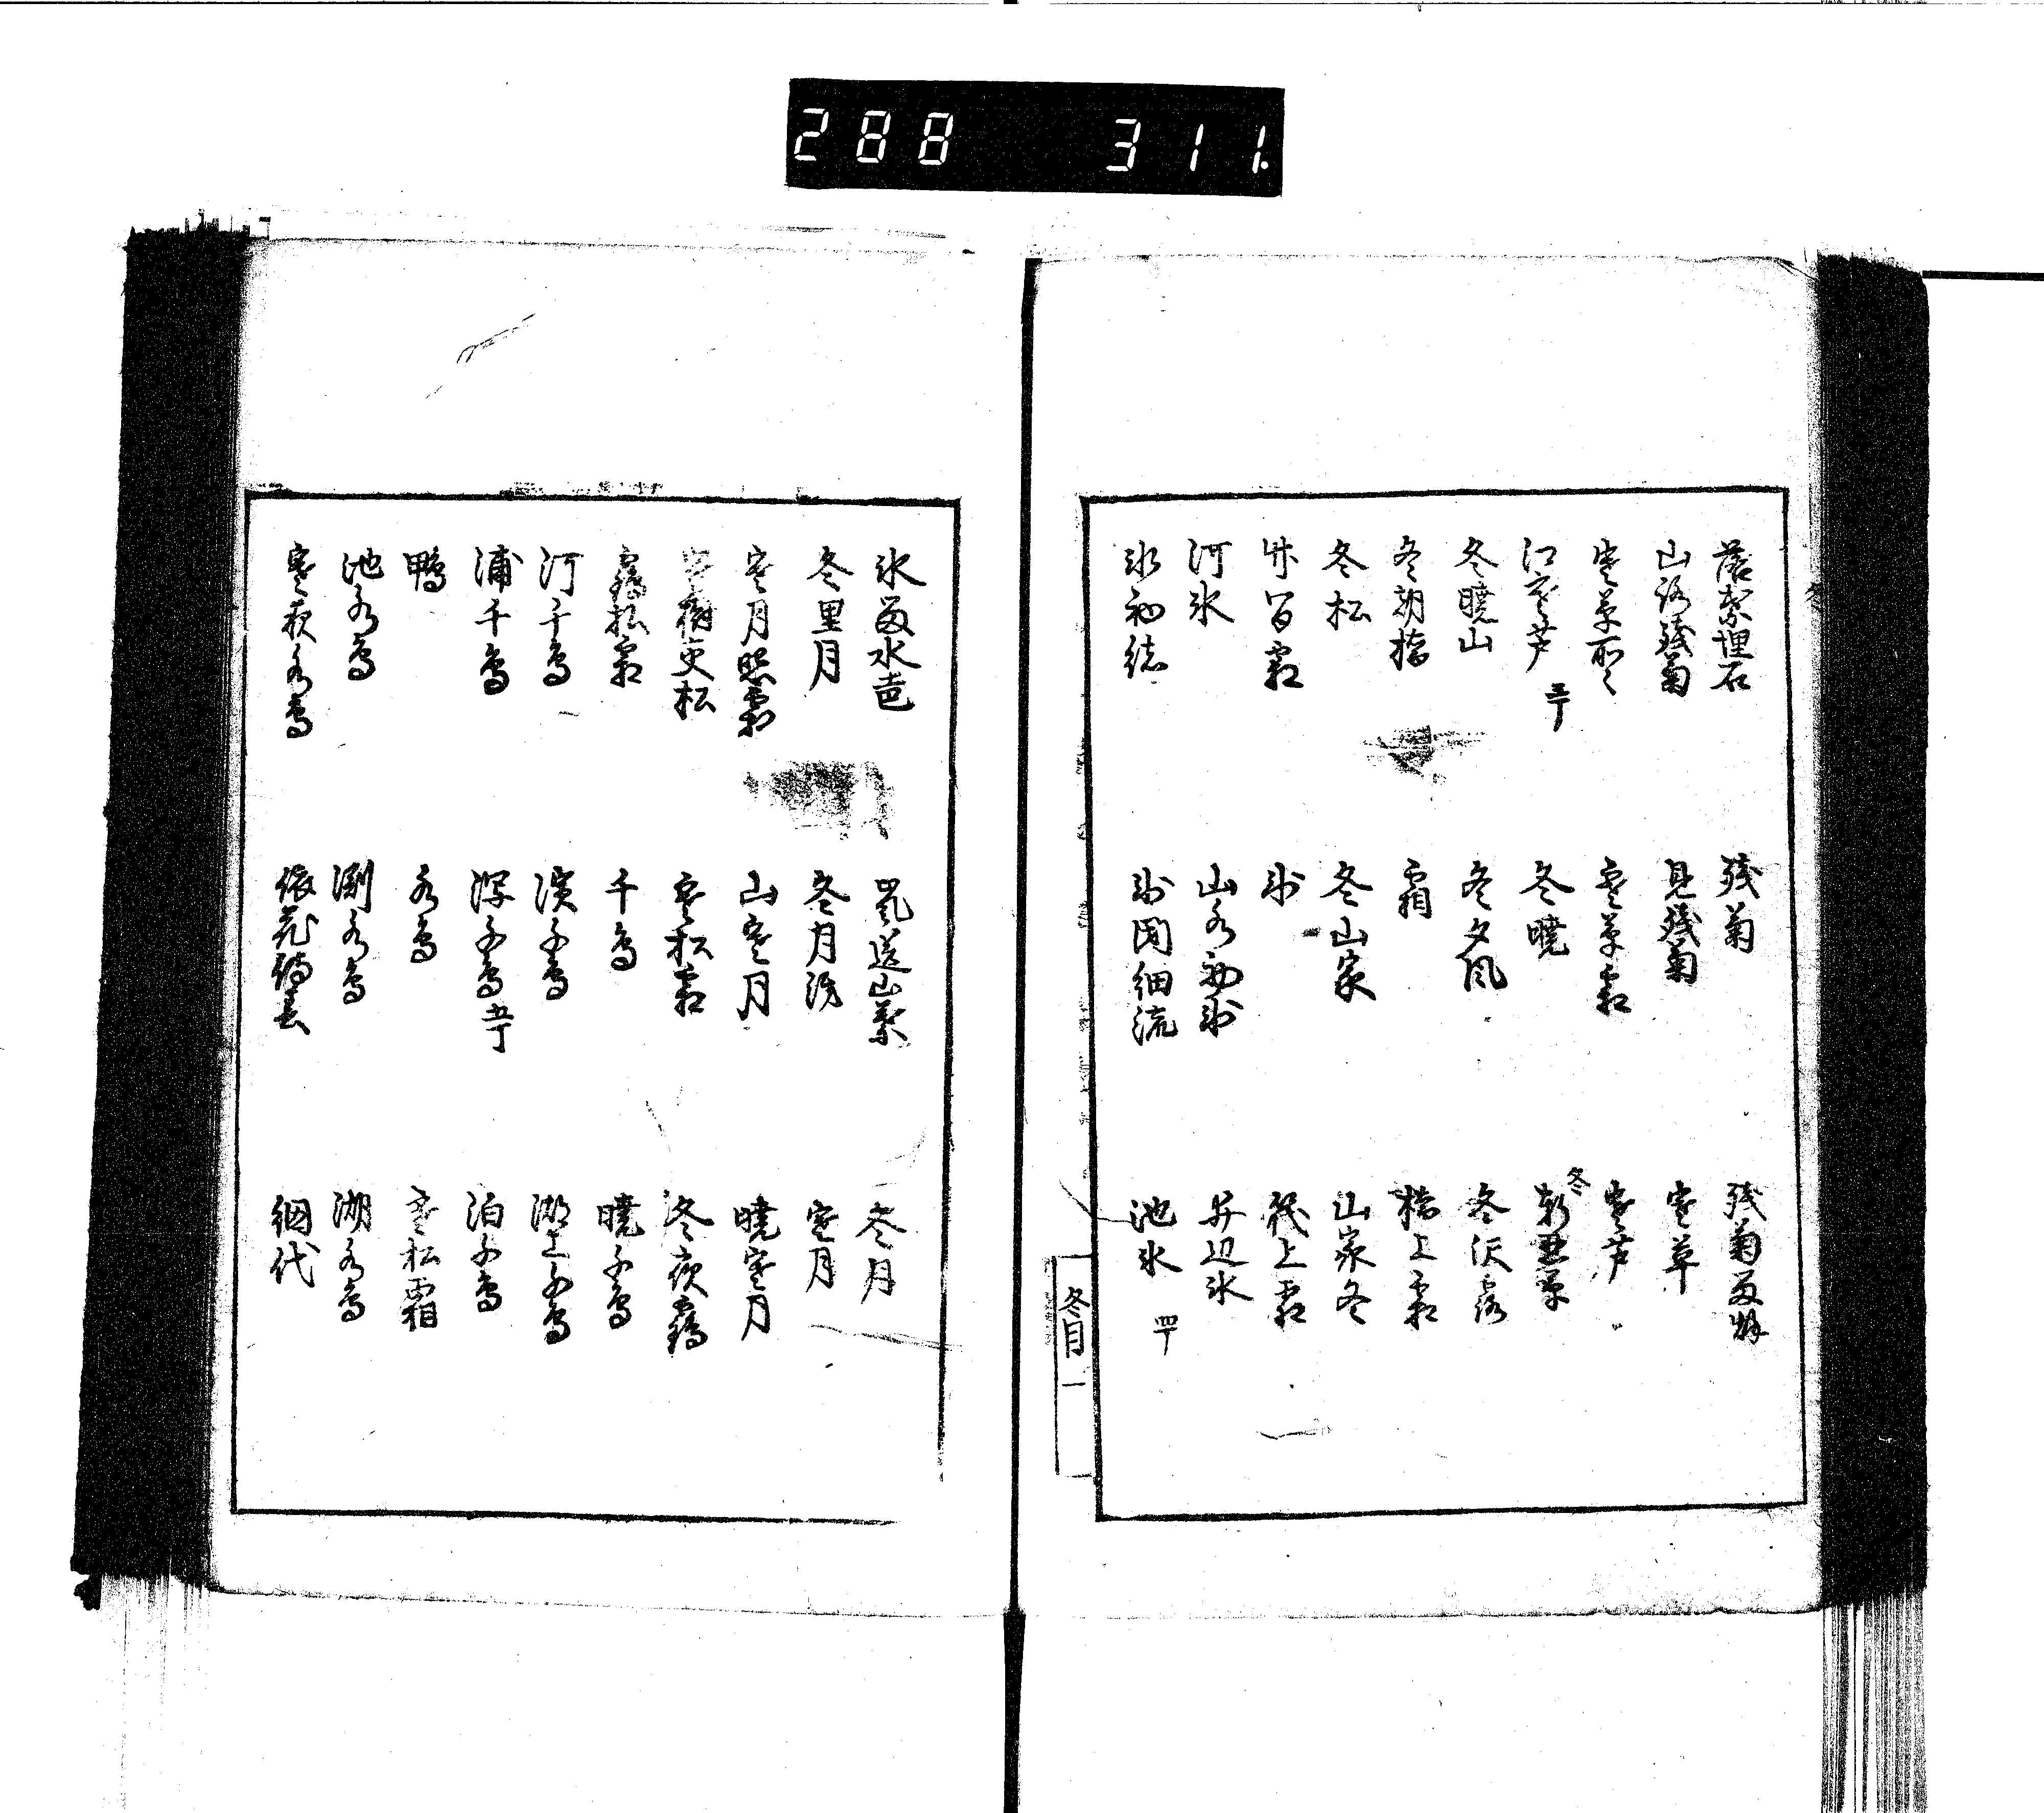 288 311.
落葉埋石
残菊
残菊尚鮮
山路残菊
見残菊
寒草
寒草所々
寒草霜
寒芦
江寒芦 三丁
冬暁
冬
冬暁山
冬夕風
冬朝
霜
霜
冬松
冬山家
山家冬
霜
氷
上霜
河氷
山水初氷
井辺氷
氷初結
氷閉細流
池氷 四丁
冬目一
氷留水声
嵐送山葉
冬月
冬里月
冬月
寒月
寒月照霜
山寒月
暁寒月
松
寒松霜
冬夜鶴
鶴払霜
千鳥
暁千鳥
河千鳥
浜千鳥
湖上千鳥
浦千鳥
千鳥 五丁
泊千鳥
鴨
水鳥
寒松霜
池水鳥
湖水鳥
寒 水鳥
依花待春
網代